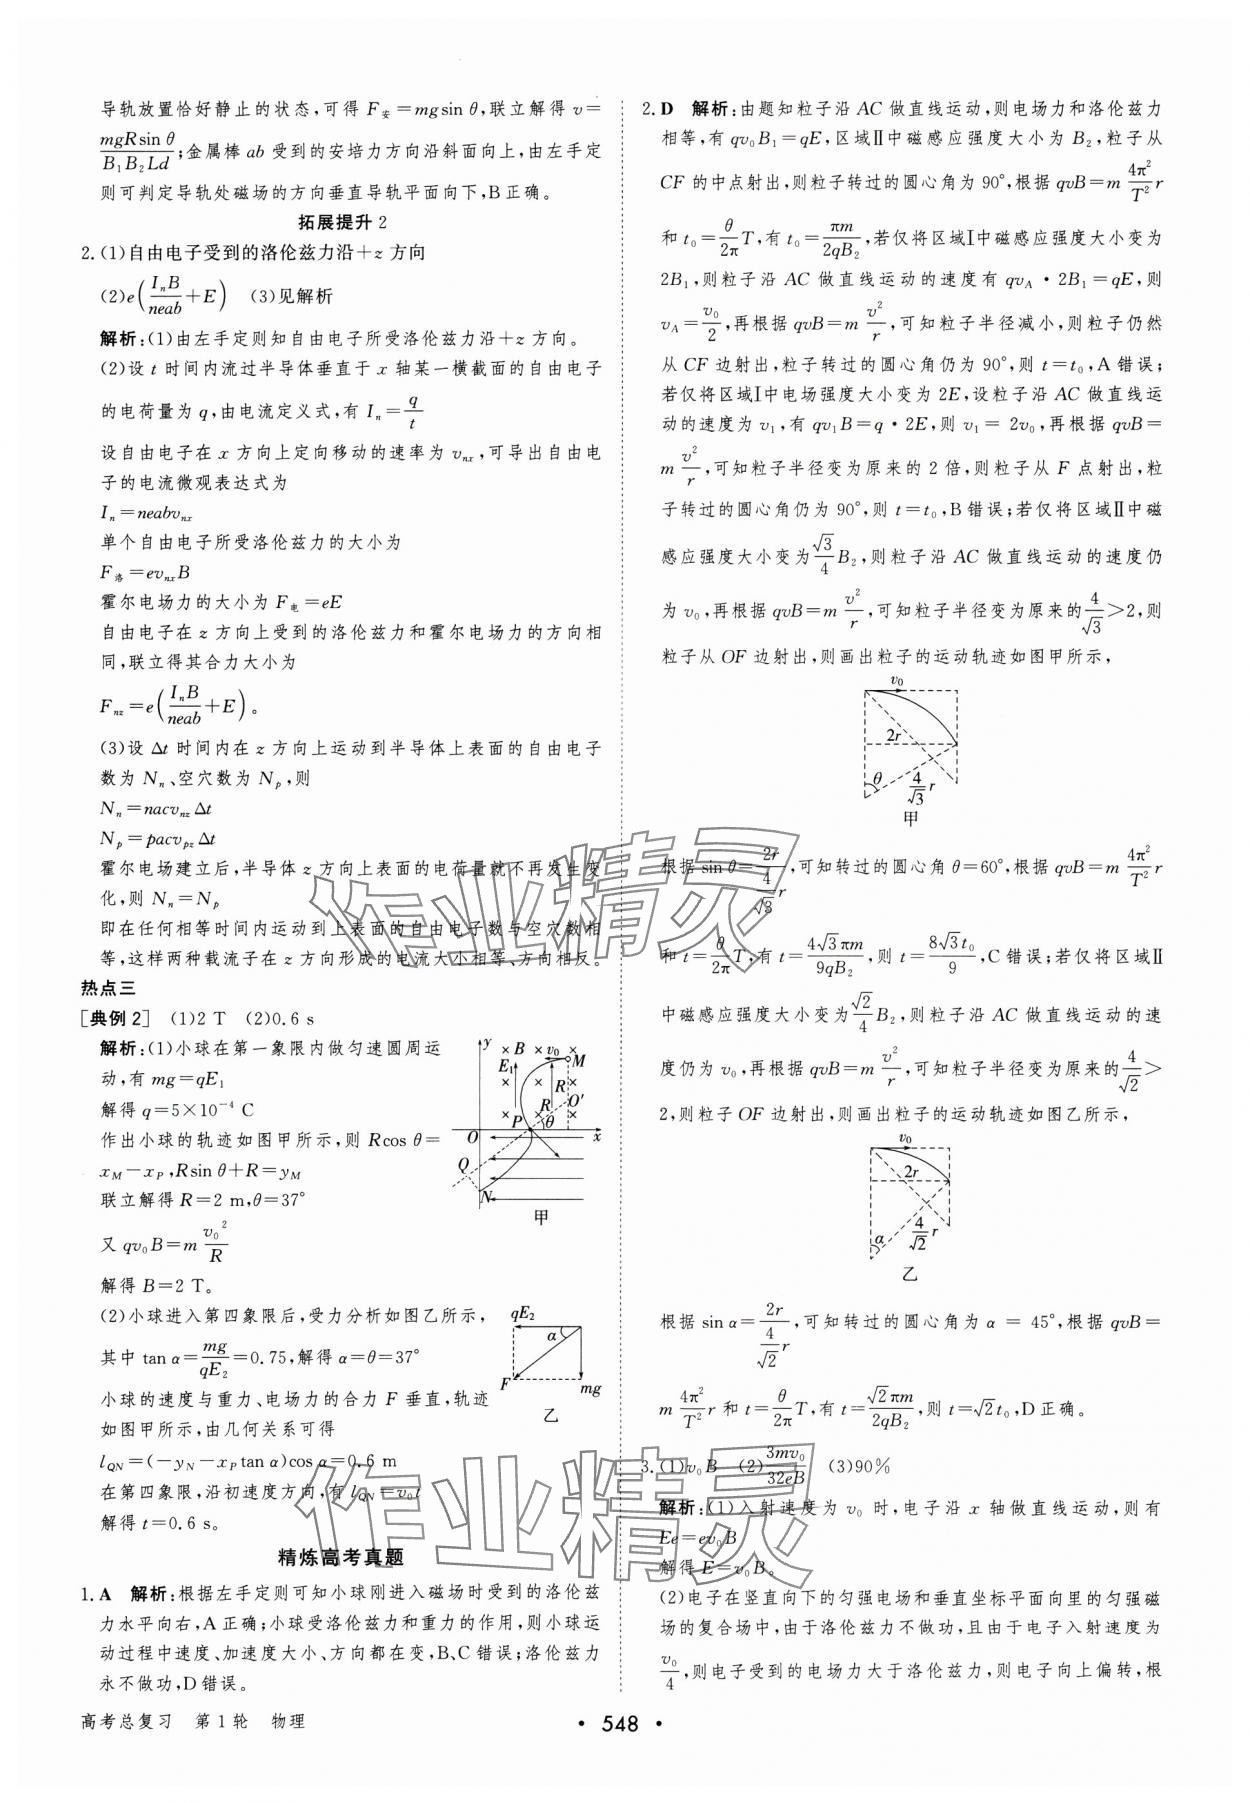 导轨放置恰好静止的状态,可得 F安=mgsin θ,联立解得 v=
mgRsin θ/B₁B₂Ld;金属棒 ab 受到的安培力方向沿斜面向上,由左手定
则可判定导轨处磁场的方向垂直导轨平面向下,B正确。
拓展提升2
2.(1)自由电子受到的洛伦兹力沿+z方向
(2)e(IₙB/neab+E) (3)见解析
解析:(1)由左手定则知自由电子所受洛伦兹力沿+z方向。
(2)设 t 时间内流过半导体垂直于 x 轴某一横截面的自由电子
的电荷量为 q,由电流定义式,有 Iₙ=q/t
设自由电子在 x 方向上定向移动的速率为 vₙₓ,可导出自由电
子的电流微观表达式为
Iₙ=neabvₙₓ
单个自由电子所受洛伦兹力的大小为
F洛=evₙₓB
霍尔电场力的大小为 F电=eE
自由电子在 z 方向上受到的洛伦兹力和霍尔电场力的方向相
同,联立得其合力大小为
Fnz=e(IₙB/neab+E)。
(3)设 Δt 时间内在 z 方向上运动到半导体上表面的自由电子
数为 Nₙ、空穴数为 Nₚ,则
Nₙ=nacvnzΔt
Nₚ=pacvpzΔt
霍尔电场建立后,半导体 z 方向上表面的电荷量就不再发生变
化,则 Nₙ=Nₚ
即在任何相等时间内运动到上表面的自由电子数与空穴数相
等,这样两种载流子在 z 方向形成的电流大小相等、方向相反。
热点三
[典例2] (1)2 T (2)0.6 s
解析:(1)小球在第一象限内做匀速圆周运
动,有 mg=qE₁
解得 q=5×10⁻⁴ C
作出小球的轨迹如图甲所示,则 Rcos θ=
xM-xP,Rsin θ+R=yM
联立解得 R=2 m,θ=37°
又 qv₀B=m v₀²/R
解得 B=2 T。
y B v₀ M E₁ R R O′ P θ O x Q N
甲
(2)小球进入第四象限后,受力分析如图乙所示,
其中 tan α=mg/qE₂=0.75,解得 α=θ=37°
小球的速度与重力、电场力的合力 F 垂直,轨迹
如图甲所示,由几何关系可得
lQN=(-yN-xPtan α)cos α=0.6 m
在第四象限,沿初速度方向,有 lQN=v₀t
解得 t=0.6 s。
qE₂ α F mg
乙
精炼高考真题
1.A 解析:根据左手定则可知小球刚进入磁场时受到的洛伦兹
力水平向右,A正确;小球受洛伦兹力和重力的作用,则小球运
动过程中速度、加速度大小、方向都在变,B、C错误;洛伦兹力
永不做功,D错误。
2.D 解析:由题知粒子沿 AC 做直线运动,则电场力和洛伦兹力
相等,有 qv₀B₁=qE,区域Ⅱ中磁感应强度大小为 B₂,粒子从
CF 的中点射出,则粒子转过的圆心角为 90°,根据 qvB=m 4π²/T² r
和 t₀=θ/2π T,有 t₀=πm/2qB₂,若仅将区域Ⅰ中磁感应强度大小变为
2B₁,则粒子沿 AC 做直线运动的速度有 qvA·2B₁=qE,则
vA=v₀/2,再根据 qvB=m v²/r,可知粒子半径减小,则粒子仍然
从 CF 边射出,粒子转过的圆心角仍为 90°,则 t=t₀,A错误;
若仅将区域Ⅰ中电场强度大小变为 2E,设粒子沿 AC 做直线运
动的速度为 v₁,有 qv₁B=q·2E,则 v₁=2v₀,再根据 qvB=
m v²/r,可知粒子半径变为原来的 2 倍,则粒子从 F 点射出,粒
子转过的圆心角仍为 90°,则 t=t₀,B错误;若仅将区域Ⅱ中磁
感应强度大小变为√3/4 B₂,则粒子沿 AC 做直线运动的速度仍
为 v₀,再根据 qvB=m v²/r,可知粒子半径变为原来的4/√3>2,则
粒子从 OF 边射出,则画出粒子的运动轨迹如图甲所示,
v₀ 2r θ 4/√3 r
甲
根据 sin θ=2r/(4/√3 r),可知转过的圆心角 θ=60°,根据 qvB=m 4π²/T² r
和 t=θ/2π T,有 t=4√3πm/9qB₂,则 t=8√3t₀/9,C错误;若仅将区域Ⅱ
中磁感应强度大小变为√2/4 B₂,则粒子沿 AC 做直线运动的速
度仍为 v₀,再根据 qvB=m v²/r,可知粒子半径变为原来的4/√2>
2,则粒子 OF 边射出,则画出粒子的运动轨迹如图乙所示,
v₀ 2r α 4/√2 r
乙
根据 sin α=2r/(4/√2 r),可知转过的圆心角为 α = 45°,根据 qvB=
m 4π²/T² r 和 t=θ/2π T,有 t=√2πm/2qB₂,则 t=√2t₀,D正确。
3.(1)v₀B (2)3mv₀/32eB (3)90%
解析:(1)入射速度为 v₀ 时,电子沿 x 轴做直线运动,则有
Ee=ev₀B
解得 E=v₀B。
(2)电子在竖直向下的匀强电场和垂直坐标平面向里的匀强磁
场的复合场中,由于洛伦兹力不做功,且由于电子入射速度为
v₀/4,则电子受到的电场力大于洛伦兹力,则电子向上偏转,根
高考总复习 第1轮 物理
· 548 ·
作业精灵
作业精灵